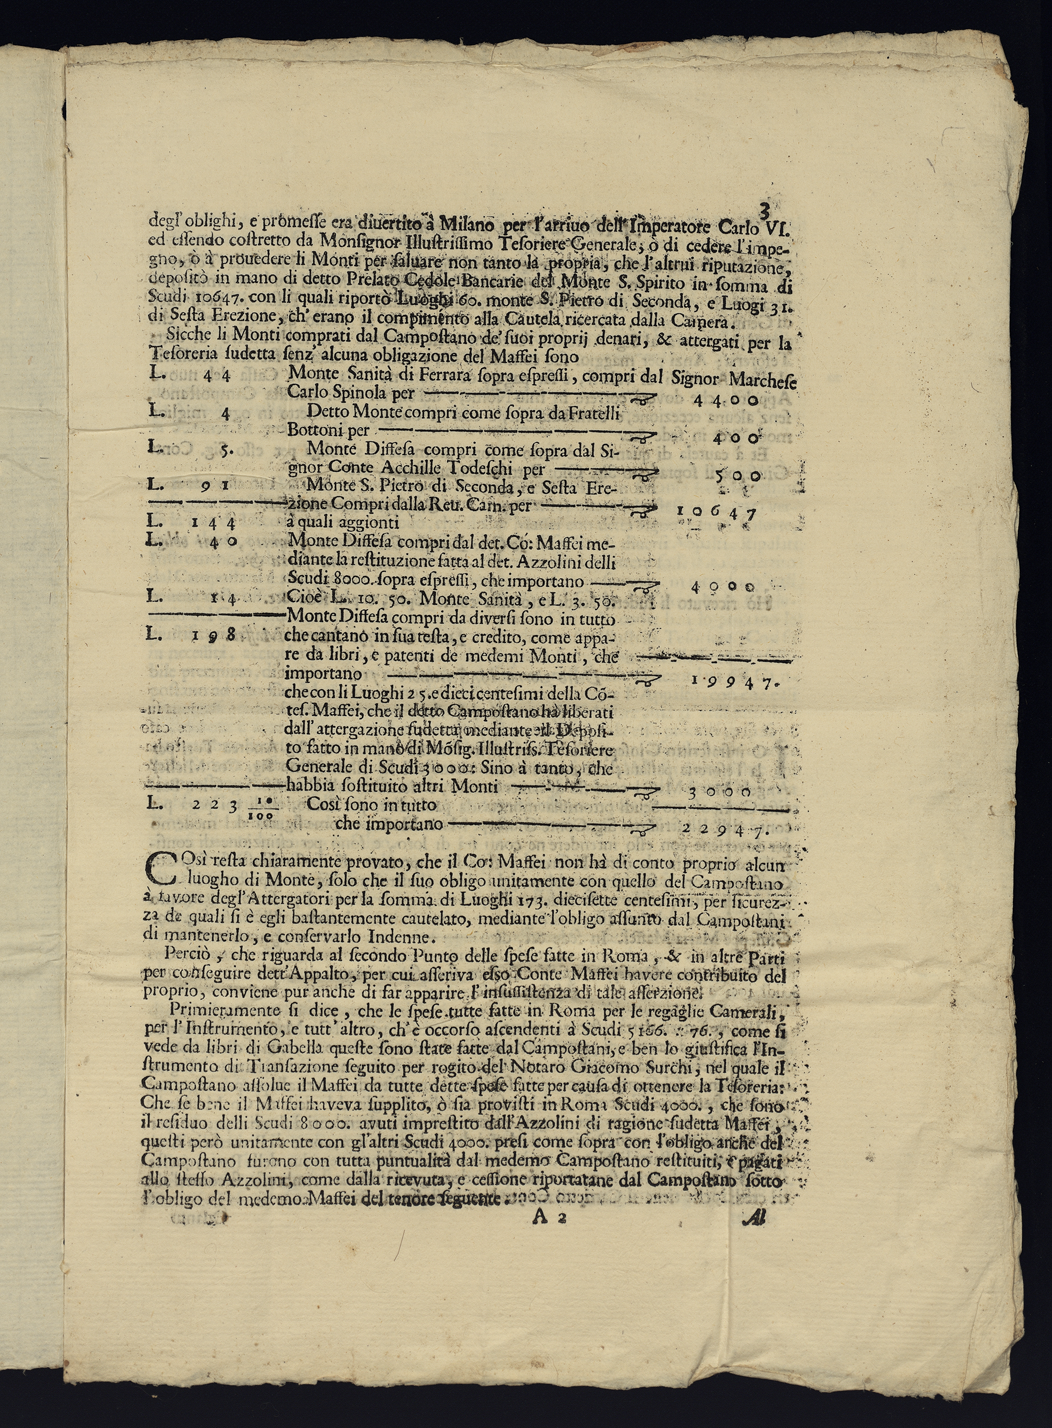 3
degl'oblighi, e promesse era diuertito à Milano per l'arriuo dell'Imperatore Carlo VI.
ed essendo costretto da Monsignor Illustrissimo Tesoriere Generale, ò di cedere l'impe-
gno, ò à prouedere li Monti per saluare non tanto la propria, che l'altrui riputazione,
depositò in mano di detto Prelato Cedole Bancarie del Monte S. Spirito in somma di
Scudi 10647. con li quali riportò Luoghi 60. monte S. Pietro di Seconda, e Luogi 31.
di Sesta Erezione, ch'erano il compimento alla Cautela ricercata dalla Camera.
Sicche li Monti comprati dal Campostano de' suoi proprij denari, & attergati per la
Tesoreria sudetta senz' alcuna obligazione del Maffei sono
L. 44 Monte Sanità di Ferrara sopra espressi, compri dal Signor Marchese
Carlo Spinola per 4400
L. 4 Detto Monte compri come sopra da Fratelli
Bottoni per 400
L. 5. Monte Diffesa compri come sopra dal Si-
gnor Conte Acchille Todeschi per 500
L. 91 Monte S. Pietro di Seconda, e Sesta Ere-
zione Compri dalla Reu. Cam. per 10647
L. 144 à quali aggionti
L. 40 Monte Diffesa compri dal det. Co: Maffei me-
diante la restituzione fatta al det. Azzolini delli
Scudi 8000. sopra espressi, che importano 4000
L. 14 Cioè L. 10. 50. Monte Sanità, e L. 3. 50.
Monte Diffesa compri da diversi sono in tutto
L. 198 che cantano in sua testa, e credito, come appa-
re da libri, e patenti de medemi Monti, che
importano 19947.
che con li Luoghi 25. e dieci centesimi della Cō-
tes. Maffei, che il detto Campostano hà liberati
dall'attergazione sudetta mediante il Deposi-
to fatto in mano di Mōsig. Illustriss. Tesoriere
Generale di Scudi 3000: Sino à tanto, che
habbia sostituito altri Monti 3000
L. 223 10/100 Così sono in tutto
che importano 22947.
COsì resta chiaramente provato, che il Co: Maffei non hà di conto proprio alcun
luogho di Monte, solo che il suo obligo unitamente con quello del Campostano
à favore degl'Attergatori per la somma di Luoghi 173. diecisette centesimi, per sicurez-
za de quali si è egli bastantemente cautelato, mediante l'obligo assunto dal Campostani
di mantenerlo, e conservarlo Indenne.
Perciò, che riguarda al secondo Punto delle spese fatte in Roma, & in altre Parti
per conseguire dett'Appalto, per cui asseriva esso Conte Maffei havere contribuito del
proprio, conviene pur anche di far apparire l'insussistenza di tale asserzione.
Primieramente si dice, che le spese tutte fatte in Roma per le regaglie Camerali,
per l'Instrumento, e tutt'altro, ch'è occorso ascendenti à Scudi 5166. : 76., come si
vede da libri di Gabella queste sono state fatte dal Campostani, e ben lo giustifica l'In-
strumento di Transazione seguito per rogito del Notaro Giacomo Surchi, nel quale il
Campostano assolue il Maffei da tutte dette spese fatte per causa di ottenere la Tesoreria:
Che se bene il Maffei haveva supplito, ò sia provisti in Roma Scudi 4000., che sono
il residuo delli Scudi 8000. avuti imprestito dall'Azzolini di ragione sudetta Maffei,
questi però unitamente con gl'altri Scudi 4000. presi come sopra con l'obligo anche del
Campostano furono con tutta puntualità dal medemo Campostano restituiti, e pagati
allo stesso Azzolini, come dalla ricevuta, e cessione riportatane dal Campostano sotto
l'obligo del medemo Maffei del tenore seguente.
A 2 Al